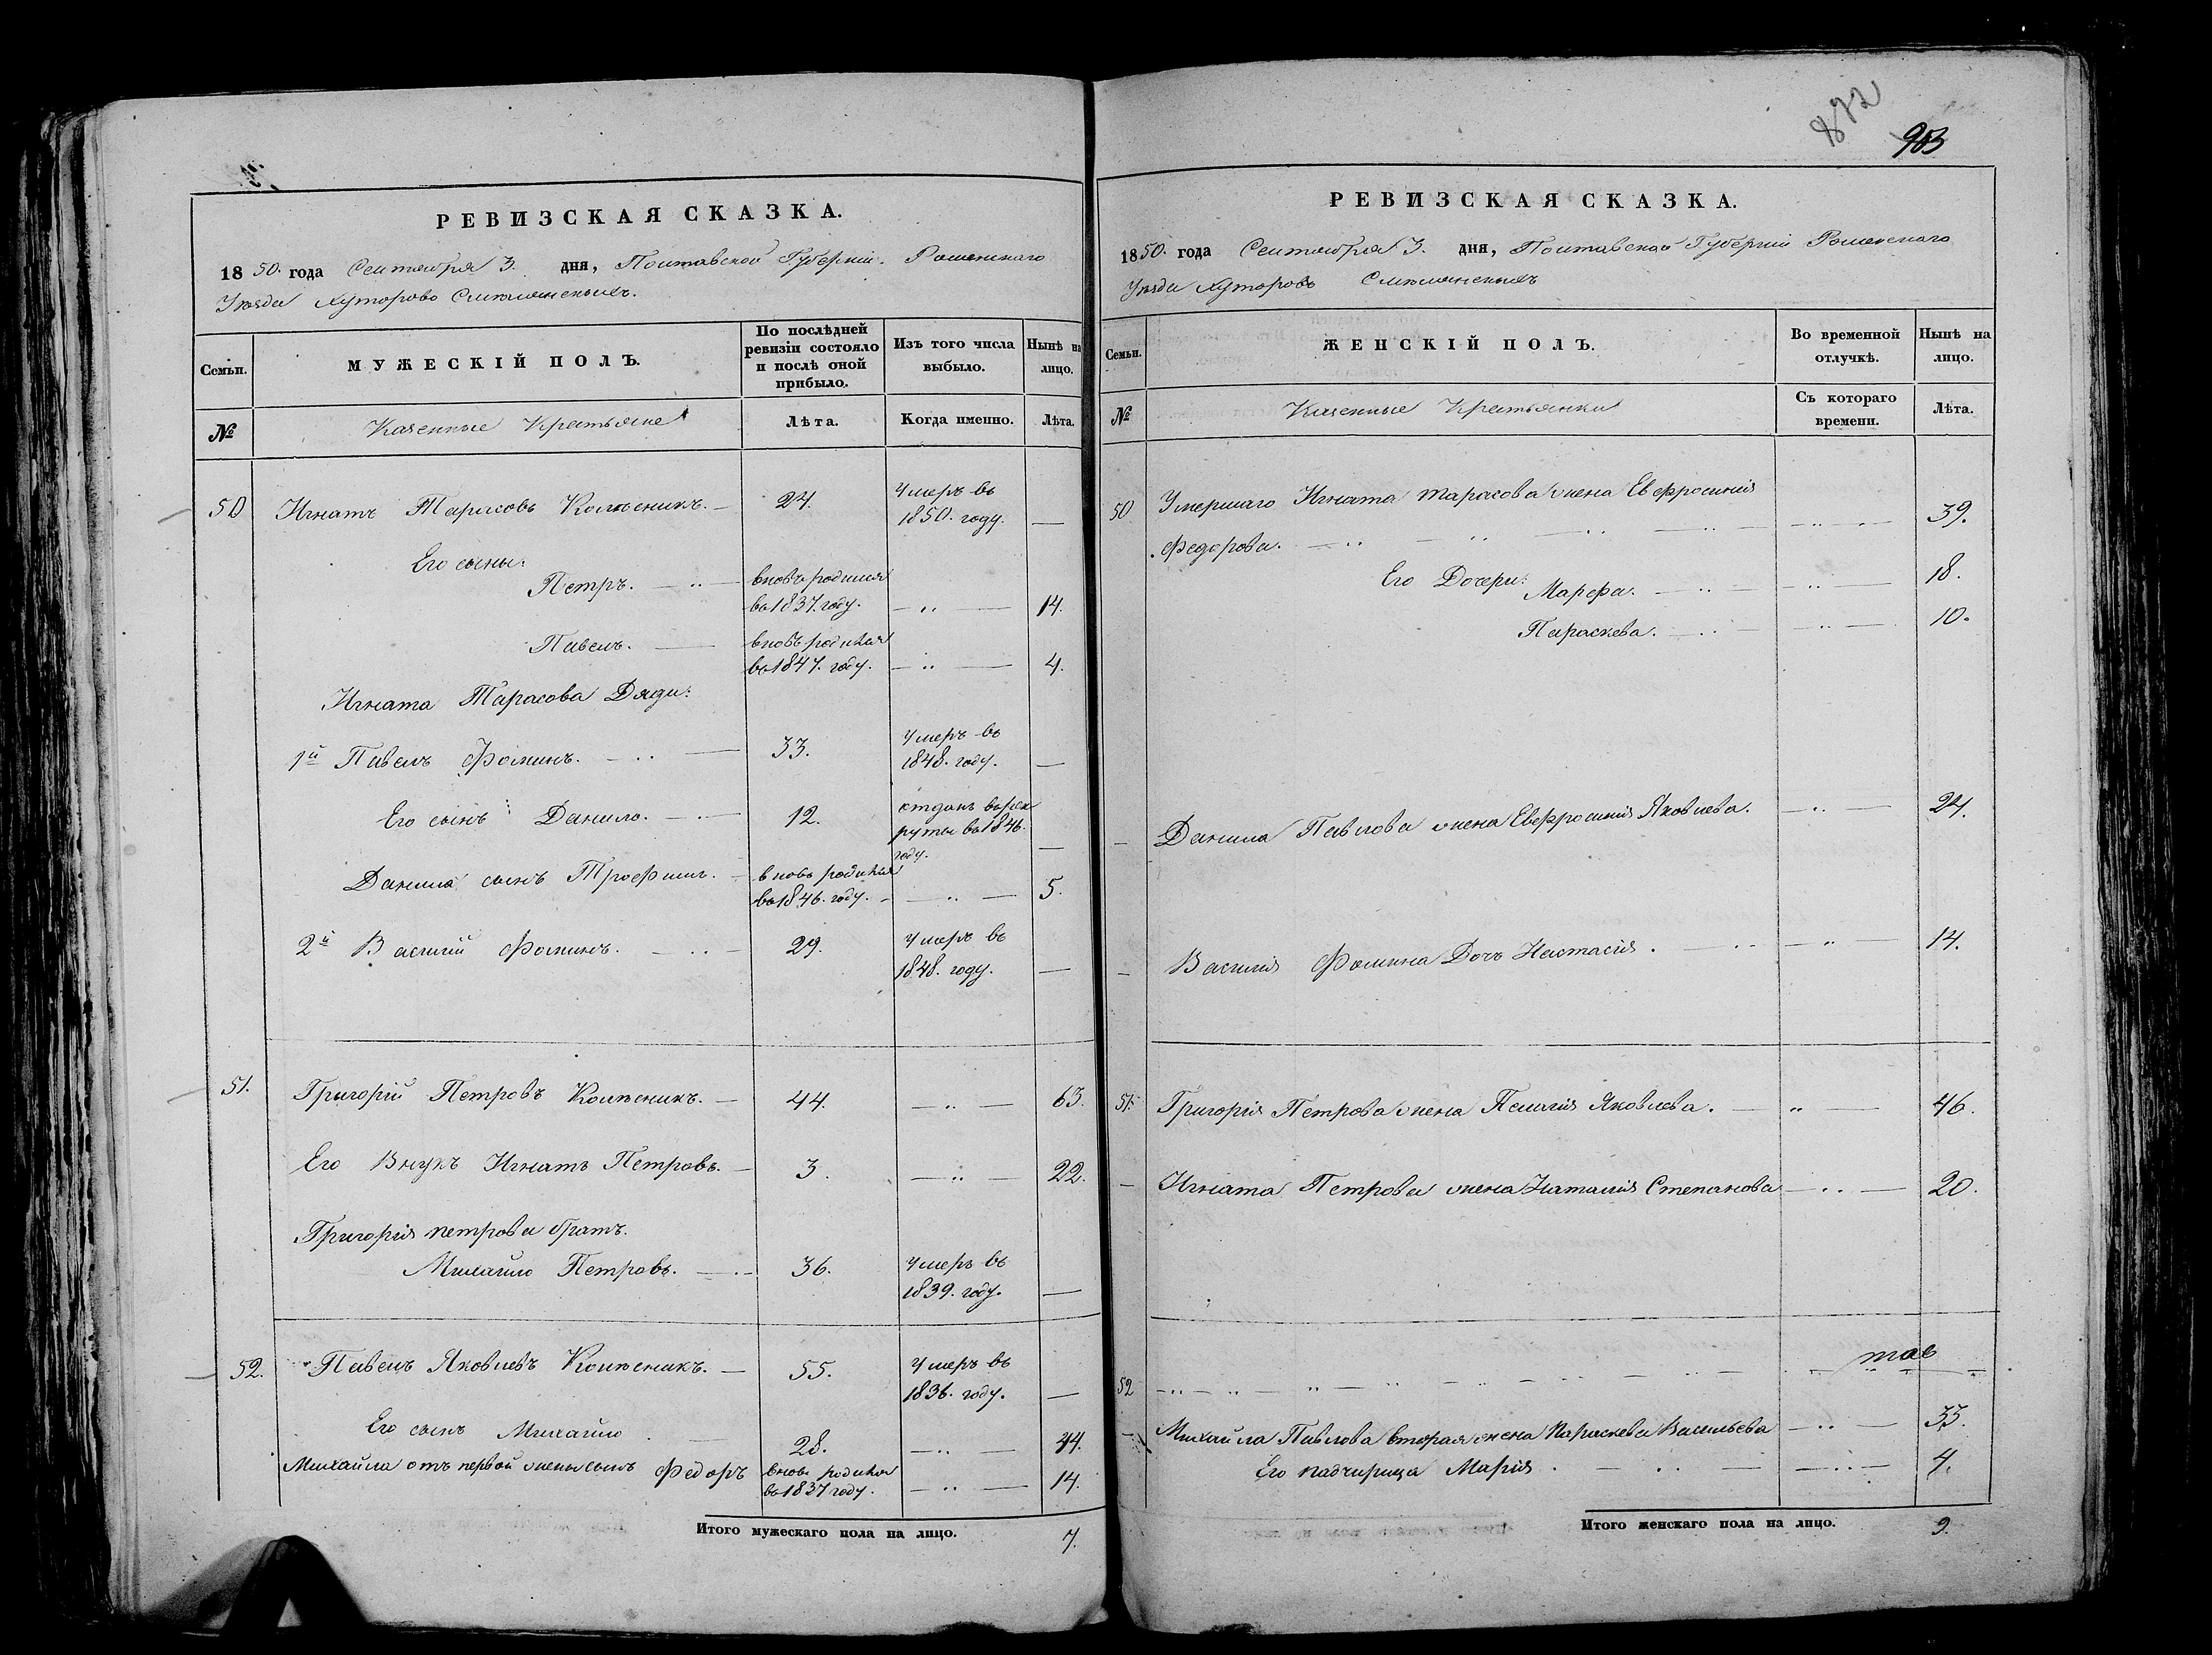 РЕВИЗСКАЯ СКАЗКА.
1850. года Сентября 3. дня, Полтавской Губерніи. Роменскаго
Уѣзда Хуторовъ
Семьи.
МУЖЕСКІЙ ПОЛЪ.
По послѣдней ревизіи состояло и послѣ оной прибыло.
Изъ того числа выбыло.
Нынѣ на лицо.
№
Казенные Крестьяне
Лѣта.
Когда именно.
Лѣта.
50 Игнатъ Тарасовъ Колѣсникъ. — 24. Умеръ въ
1850. году. —
Его сыны:
Петръ. — вновь родился
въ 1837. году. — 14.
Павелъ. — вновь родился
въ 1847. году. — 4.
Игната Тарасова Дяди:
1й Павелъ Фоминъ. — 33. Умеръ въ
1848. году. —
Его сынъ Данило. — 12. отданъ въ рек
руты въ 1846.
году. —
Данила сынъ Трофимъ. — вновь родился
въ 1846. году. — 5.
2й Василій Фоминъ. — 29. Умеръ въ
1848. году. —
51. Григорій Петровъ Колѣсникъ. — 44. — 63.
Его Внукъ Игнатъ Петровъ. — 3. — 22.
Григорія петрова братъ.
Михайло Петровъ. — 36. Умеръ въ
1839. году. —
52. Павелъ Яковлевъ Колѣсникъ. — 55. Умеръ въ
1836. году. —
Его сынъ Михайло — 28. — 44.
Михайла отъ первой жены сынъ Федоръ вновь родился
въ 1837 году. — 14.
Итого мужескаго пола на лицо. 7.
872
903
РЕВИЗСКАЯ СКАЗКА.
1850. года Сентября 3. дня, Полтавской Губерніи Роменскаго
Уѣзда Хуторовъ
Семьи.
ЖЕНСКІЙ ПОЛЪ.
Во временной отлучкѣ.
Нынѣ на лицо.
№
Казенные Крестьянки
Съ котораго времени.
Лѣта.
50 Умершаго Игната Тарасова жена Евфросинія
Федорова. — 39.
Его Дочери: Марфа. — 18.
Параскева. — 10.
— Данила Павлова жена Евфросинія Яковлева. — 24.
— Василія Фомина Дочь Настасія. — 14.
51. Григорія Петрова жена Пелагія Яковлева. — 46.
— Игната Петрова жена Наталія Степанова — 20.
52
— Михайла Павлова вторая жена Параскева Васильева — 33.
Его падчерица Марія. — 4.
Итого женскаго пола на лицо. 9.